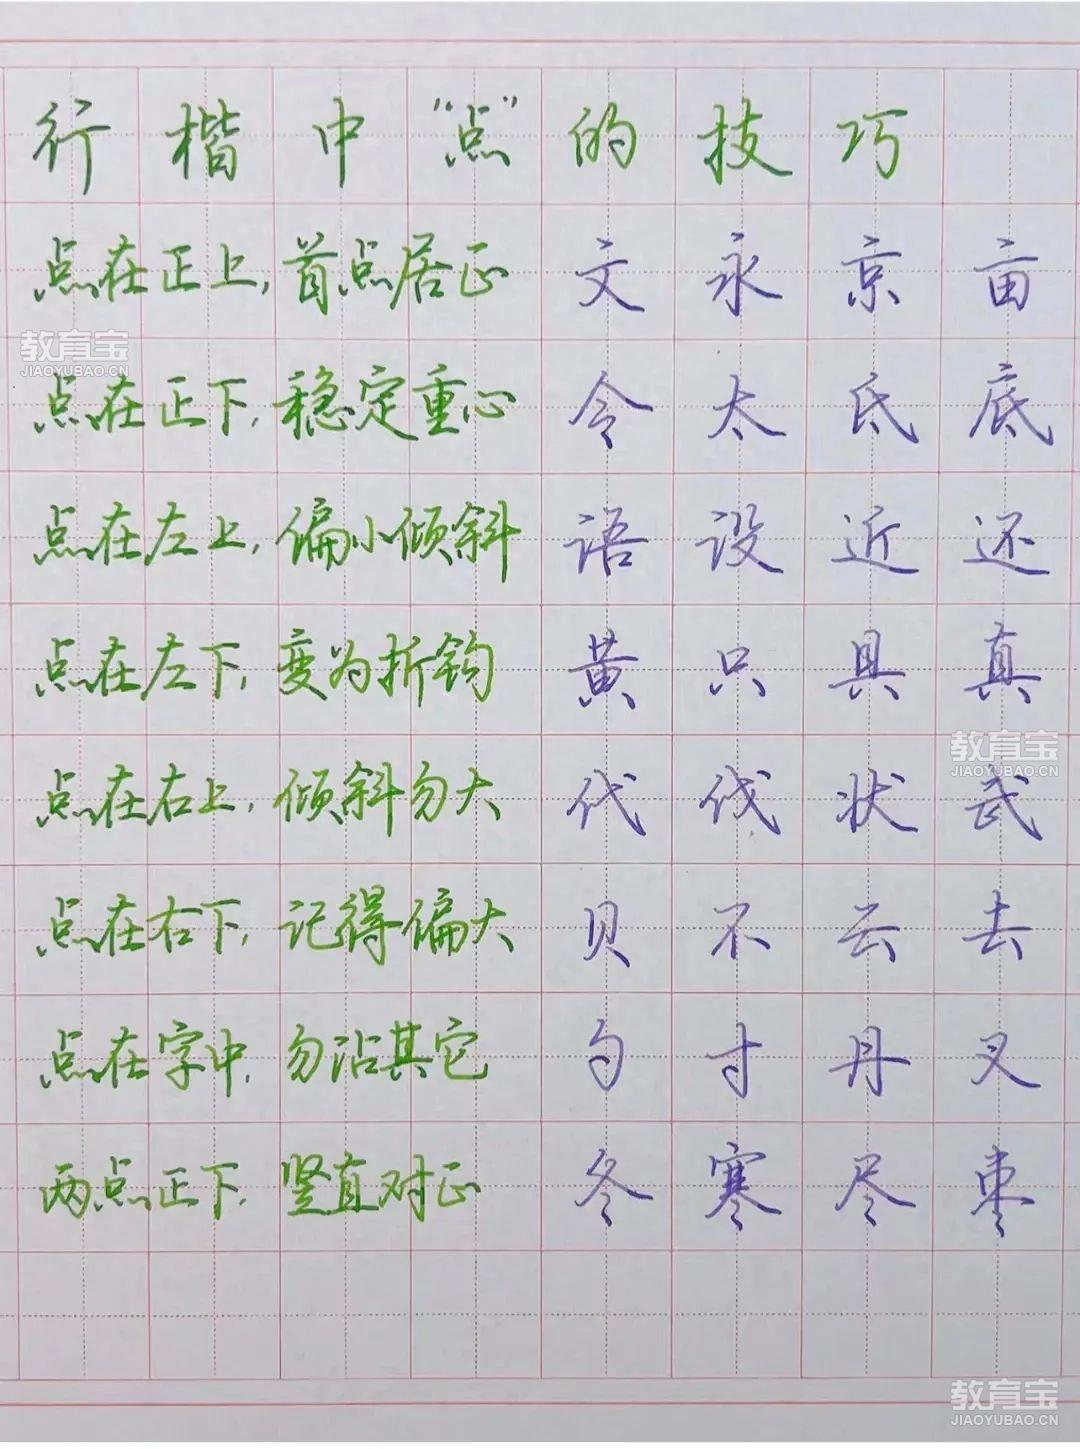 行楷中“点”的技巧
点在正上,首点居正 文 永 京 亩
教育宝
JIAOYUBAO.CN
点在正下,稳定重心 令 太 氐 底
点在左上,偏小倾斜 语 设 近 还
点在左下,变为折钩 黄 只 具 真
教育宝
JIAOYUBAO.CN
点在右上,倾斜勿大 代 伐 状 武
点在右下,记得偏大 贝 不 云 去
点在字中,勿沾其它 勺 寸 丹 叉
两点正下,竖直对正 冬 寒 尽 枣
教育宝
JIAOYUBAO.CN